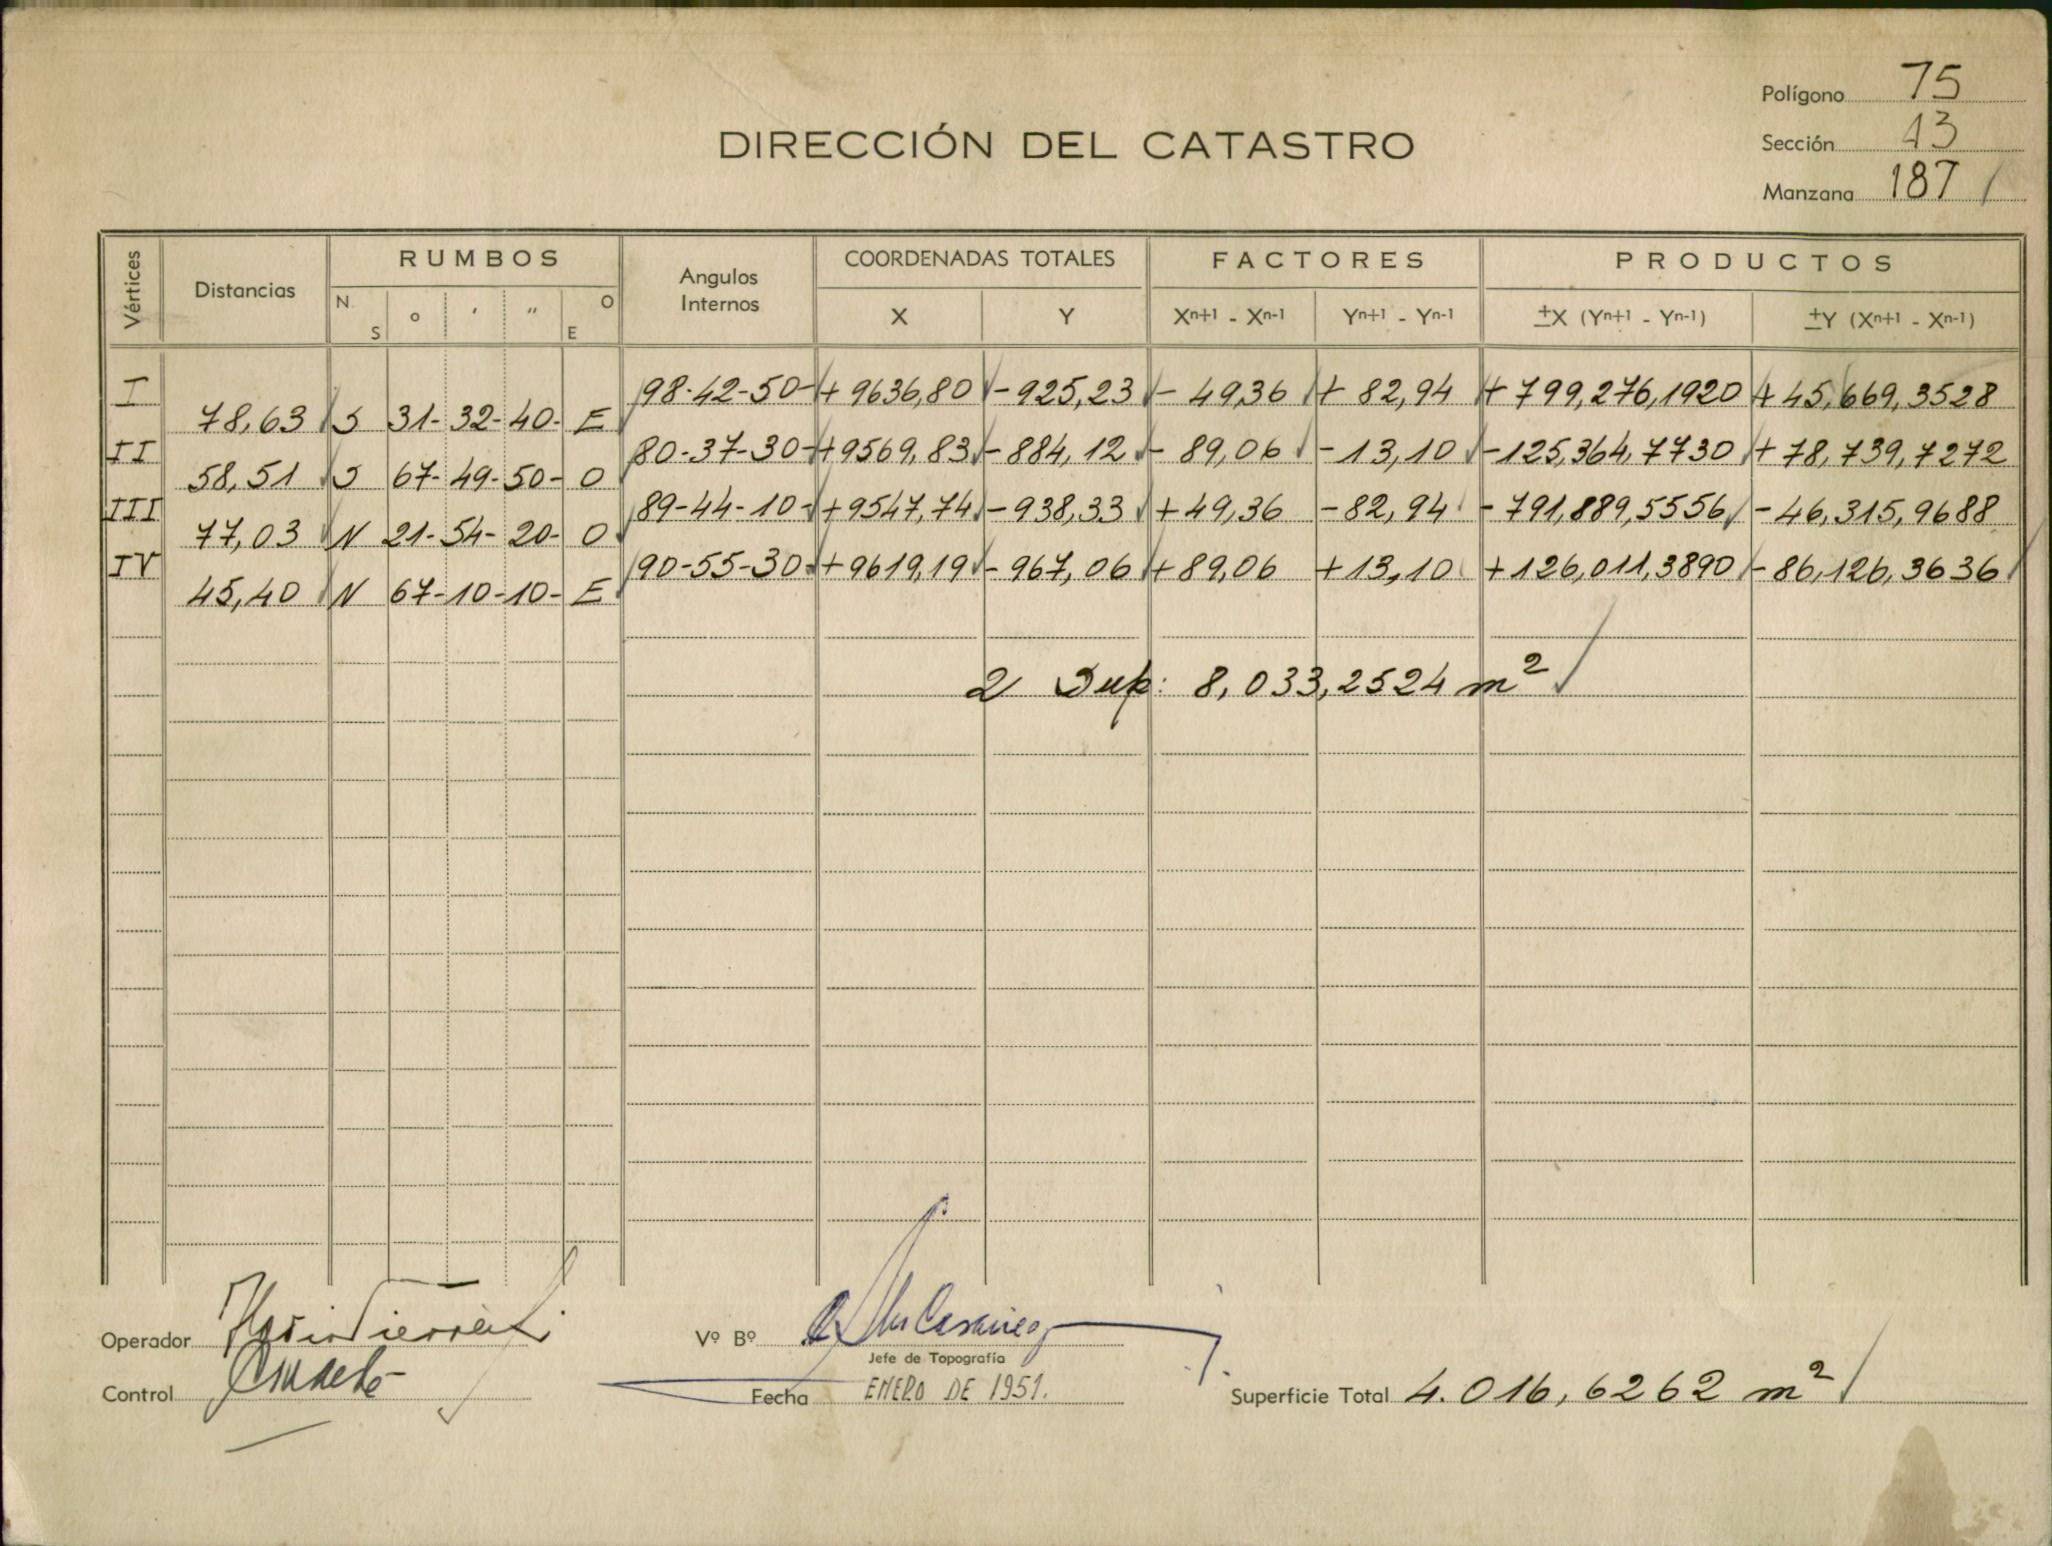 Polígono 75
DIRECCIÓN DEL CATASTRO
Sección 13
Manzana 187
Vértices Distancias RUMBOS Angulos Internos COORDENADAS TOTALES FACTORES PRODUCTOS
N S ° ' " O E X Y Xn+1 - Xn-1 Yn+1 - Yn-1 ±X (Yn+1 - Yn-1) ±Y (Xn+1 - Xn-1)
I 98-42-50- +9636,80 -925,23 - 49,36 + 82,94 + 799,276,1920 + 45,669,3528
78,63 S 31- 32- 40- E
II 80-37-30- +9569,83 -884,12 - 89,06 -13,10 -125,364,7730 + 78,739,7272
58,51 S 67- 49- 50- O
III 89-44-10- +9547,74 -938,33 +49,36 -82,94 - 791,889,5556 - 46,315,9688
77,03 N 21- 54- 20- O
IV 90-55-30- +9619,19 -967,06 +89,06 +13,10 +126,011,3890 - 86,126,3636
45,40 N 67- 10- 10- E
2 Sup: 8,033,2524 m²
Operador
Vº Bº
Jefe de Topografía
Control
Fecha ENERO DE 1951.
Superficie Total 4.016,6262 m²